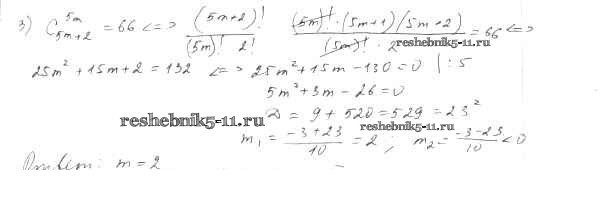 3) C_{5m+2}^{5m} = 66 <=> (5m+2)! / (5m)! 2! (5m)! · (5m+1)(5m+2) / (5m)! · 2 = 66 <=>
reshebnik5-11.ru
25m² + 15m + 2 = 132 <=> 25m² + 15m - 130 = 0 | : 5
5m² + 3m - 26 = 0
D = 9 + 520 = 529 = 23²
reshebnik5-11.ru reshebnik5-11.ru
m₁ = (-3+23)/10 = 2 ; m₂ = (-3-23)/10 < 0
Ответ: m = 2